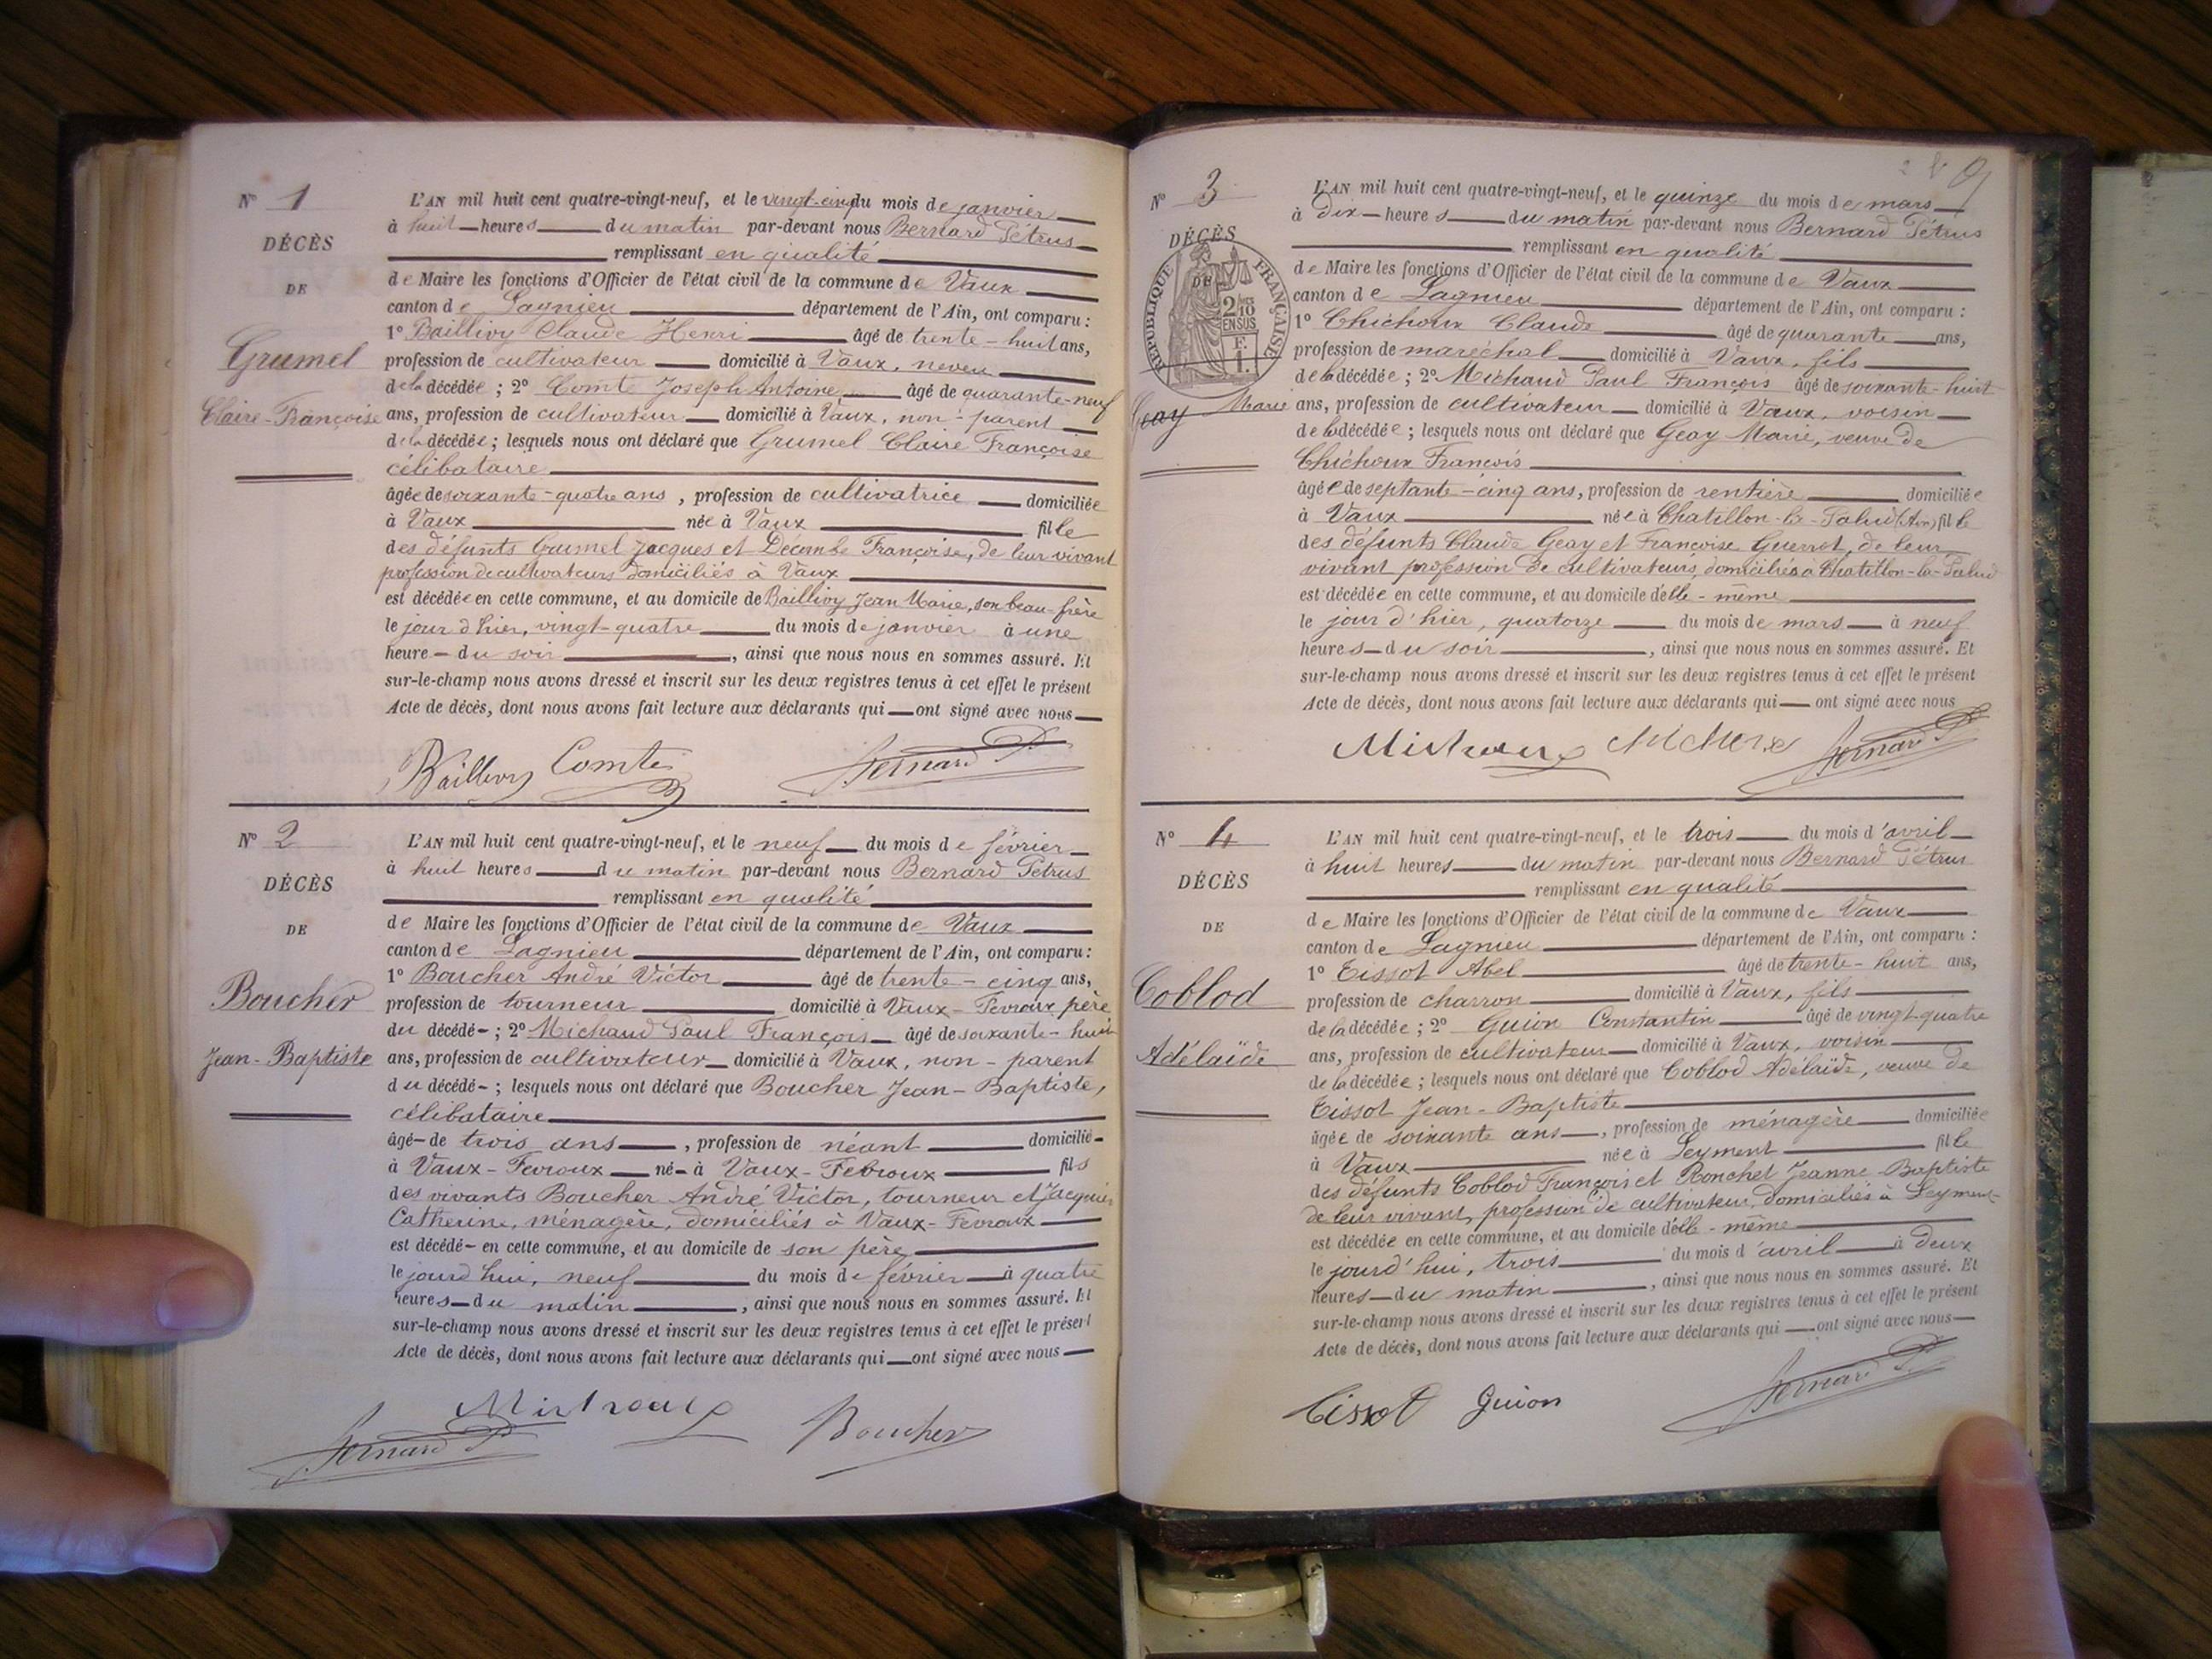 N° 1
DÉCÈS
DE
Grumel
Claire-Françoise
L'AN mil huit cent quatre-vingt-neuf, et le vingt-cinq du mois de janvier
à huit heures du matin par-devant nous Bernard Pétrus
remplissant en qualité
de Maire les fonctions d'Officier de l'état civil de la commune de Vaux
canton de Lagnieu département de l'Ain, ont comparu :
1° Baillivy Claude Henri âgé de trente-huit ans,
profession de cultivateur domicilié à Vaux, neveu
de la décédée ; 2° Comte Joseph Antoine âgé de quarante-neuf
ans, profession de cultivateur domicilié à Vaux, non-parent
de la décédée ; lesquels nous ont déclaré que Grumel Claire Françoise
célibataire
âgée de soixante-quatre ans, profession de cultivatrice domiciliée
à Vaux née à Vaux fille
des défunts Grumel Jacques et Décombe Françoise, de leur vivant
profession de cultivateurs domiciliés à Vaux
est décédée en cette commune, et au domicile de Baillivy Jean Marie, son beau-frère
le jour d'hier, vingt-quatre du mois de janvier à une
heure - du soir, ainsi que nous nous en sommes assuré. Et
sur-le-champ nous avons dressé et inscrit sur les deux registres tenus à cet effet le présent
Acte de décès, dont nous avons fait lecture aux déclarants qui ont signé avec nous
Baillivy Comte Bernard P.
N° 2
DÉCÈS
DE
Boucher
Jean-Baptiste
L'AN mil huit cent quatre-vingt-neuf, et le neuf du mois de février
à huit heures du matin par-devant nous Bernard Pétrus
remplissant en qualité
de Maire les fonctions d'Officier de l'état civil de la commune de Vaux
canton de Lagnieu département de l'Ain, ont comparu :
1° Boucher André Victor âgé de trente-cinq ans,
profession de tourneur domicilié à Vaux-Fevroux père
du décédé- ; 2° Michaud Paul François âgé de soixante-huit
ans, profession de cultivateur domicilié à Vaux, non-parent
du décédé- ; lesquels nous ont déclaré que Boucher Jean-Baptiste,
célibataire
âgé- de trois ans, profession de néant domicilié-
à Vaux-Fevroux né- à Vaux-Febroux fils
des vivants Boucher André Victor, tourneur et Jacquier
Catherine, ménagère, domiciliés à Vaux-Fevroux
est décédé- en cette commune, et au domicile de son père
le jourd'hui, neuf du mois de février à quatre
heures - du matin, ainsi que nous nous en sommes assuré. Et
sur-le-champ nous avons dressé et inscrit sur les deux registres tenus à cet effet le présent
Acte de décès, dont nous avons fait lecture aux déclarants qui ont signé avec nous
Bernard P. Boucher
N° 3
DÉCÈS
DE
RÉPUBLIQUE FRANÇAISE
2/10 EN SUS
F. 1.
Geay Marie
L'AN mil huit cent quatre-vingt-neuf, et le quinze du mois de mars
à Dix heures du matin par-devant nous Bernard Pétrus
remplissant en qualité
de Maire les fonctions d'Officier de l'état civil de la commune de Vaux
canton de Lagnieu département de l'Ain, ont comparu :
1° Chichoux Claude âgé de quarante ans,
profession de maréchal domicilié à Vaux, fils
de la décédée ; 2° Michaud Paul François âgé de soixante-huit
ans, profession de cultivateur domicilié à Vaux, voisin
de la décédée ; lesquels nous ont déclaré que Geay Marie, veuve de
Chichoux François
âgée de septante-cinq ans, profession de rentière domiciliée
à Vaux née à Chatillon-la-Palud (Ain) fille
des défunts Claude Geay et Françoise Guerret, de leur
vivant profession de cultivateurs, domiciliés à Chatillon-la-Palud
est décédée en cette commune, et au domicile d'elle-même
le jour d'hier, quatorze du mois de mars à neuf
heures - du soir, ainsi que nous nous en sommes assuré. Et
sur-le-champ nous avons dressé et inscrit sur les deux registres tenus à cet effet le présent
Acte de décès, dont nous avons fait lecture aux déclarants qui ont signé avec nous
Bernard P.
N° 4
DÉCÈS
DE
Coblod
Adélaïde
L'AN mil huit cent quatre-vingt-neuf, et le trois du mois d'avril
à huit heures du matin par-devant nous Bernard Pétrus
remplissant en qualité
de Maire les fonctions d'Officier de l'état civil de la commune de Vaux
canton de Lagnieu département de l'Ain, ont comparu :
1° Tissot Abel âgé de trente-huit ans,
profession de charron domicilié à Vaux, fils
de la décédée ; 2° Guion Constantin âgé de vingt-quatre
ans, profession de cultivateur domicilié à Vaux, voisin
de la décédée ; lesquels nous ont déclaré que Coblod Adélaïde, veuve de
Tissot Jean-Baptiste
âgée de soixante ans, profession de ménagère domiciliée
à Vaux née à Leyment fille
des défunts Coblod François et Ronchet Jeanne-Baptiste
de leur vivant, profession de cultivateur, domiciliés à Leyment
est décédée en cette commune, et au domicile d'elle-même
le jourd'hui, trois du mois d'avril à deux
heures - du matin, ainsi que nous nous en sommes assuré. Et
sur-le-champ nous avons dressé et inscrit sur les deux registres tenus à cet effet le présent
Acte de décès, dont nous avons fait lecture aux déclarants qui ont signé avec nous
Tissot Guion Bernard P.